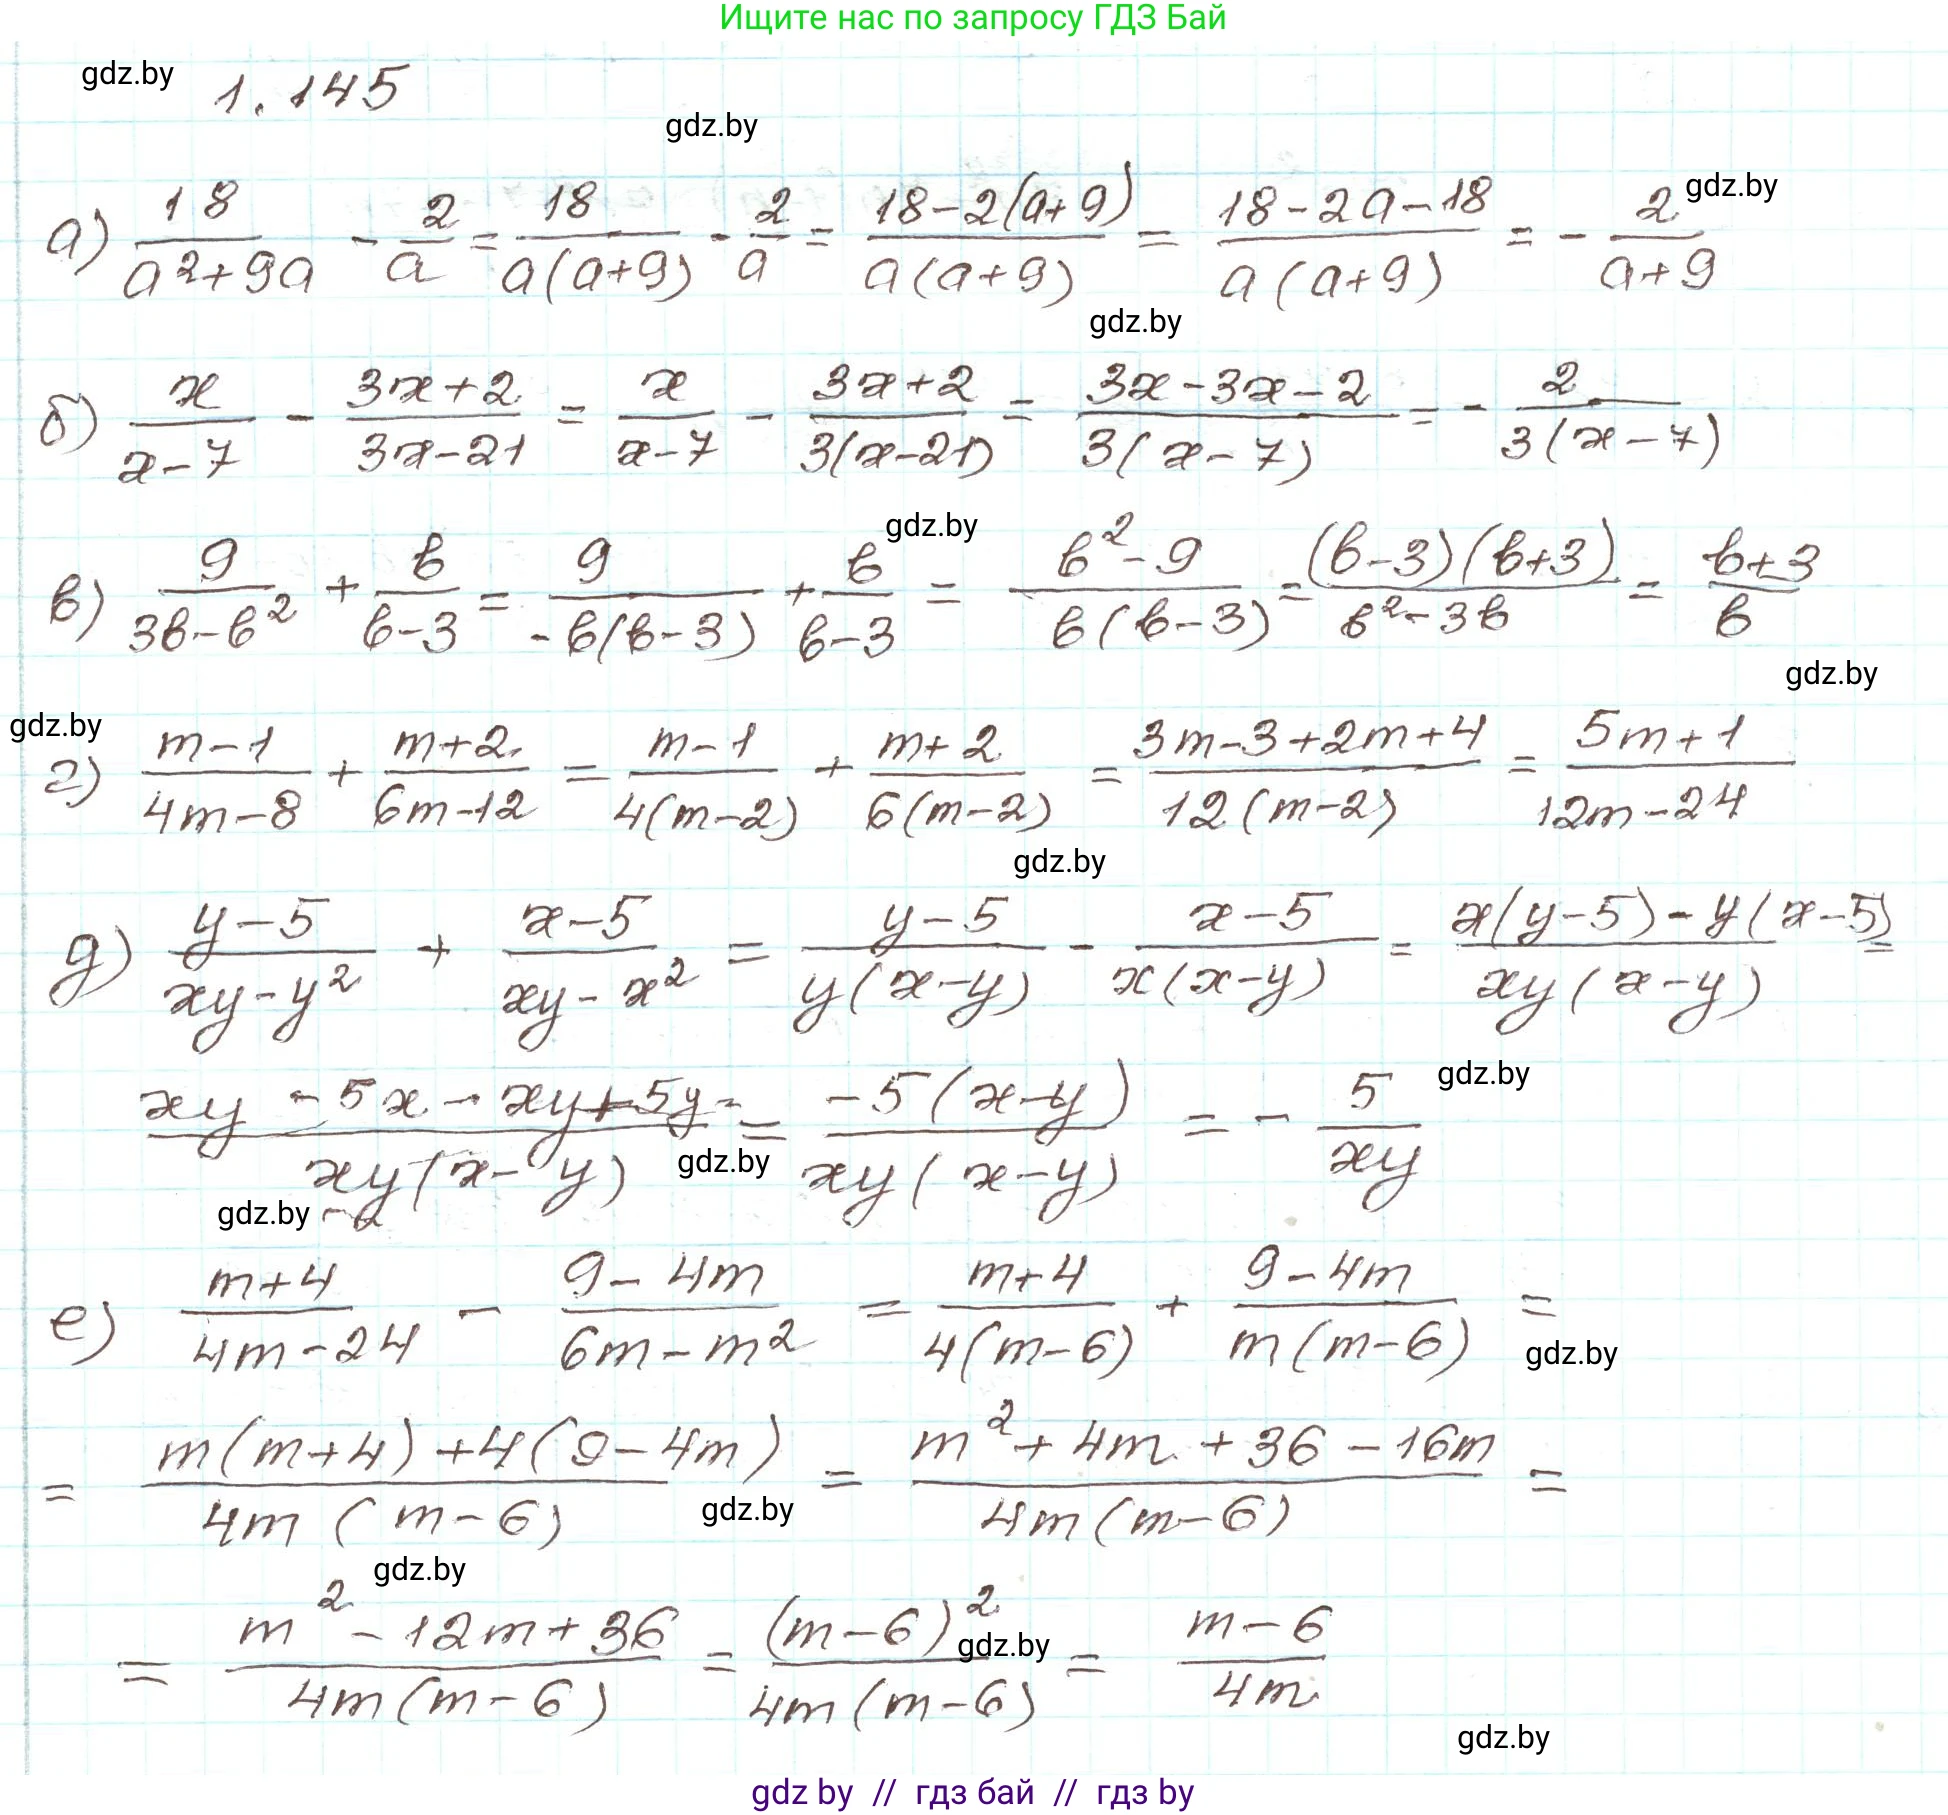 Ищите нас по запросу ГДЗ Бай
gdz.by 1.145
gdz.by
gdz.by
а) 18/(a²+9a) - 2/a = 18/(a(a+9)) - 2/a = (18-2(a+9))/(a(a+9)) = (18-2a-18)/(a(a+9)) = - 2/(a+9)
gdz.by
б) x/(x-7) - (3x+2)/(3x-21) = x/(x-7) - (3x+2)/(3(x-21)) = (3x-3x-2)/(3(x-7)) = - 2/(3(x-7))
gdz.by
в) 9/(3b-b²) + b/(b-3) = 9/(-b(b-3)) + b/(b-3) = (b²-9)/(b(b-3)) = ((b-3)(b+3))/(b²-3b) = (b+3)/b
gdz.by
gdz.by
г) (m-1)/(4m-8) + (m+2)/(6m-12) = (m-1)/(4(m-2)) + (m+2)/(6(m-2)) = (3m-3+2m+4)/(12(m-2)) = (5m+1)/(12m-24)
gdz.by
д) (y-5)/(xy-y²) + (x-5)/(xy-x²) = (y-5)/(y(x-y)) - (x-5)/(x(x-y)) = (x(y-5)-y(x-5))/(xy(x-y)) =
gdz.by
(xy-5x-xy+5y)/(xy(x-y)) = (-5(x-y))/(xy(x-y)) = - 5/(xy)
gdz.by
gdz.by
е) (m+4)/(4m-24) - (9-4m)/(6m-m²) = (m+4)/(4(m-6)) + (9-4m)/(m(m-6)) =
gdz.by
= (m(m+4)+4(9-4m))/(4m(m-6)) = (m²+4m+36-16m)/(4m(m-6)) =
gdz.by
gdz.by
= (m²-12m+36)/(4m(m-6)) = (m-6)²/(4m(m-6)) = (m-6)/(4m)
gdz.by
gdz.by
gdz by // гдз бай // гдз by